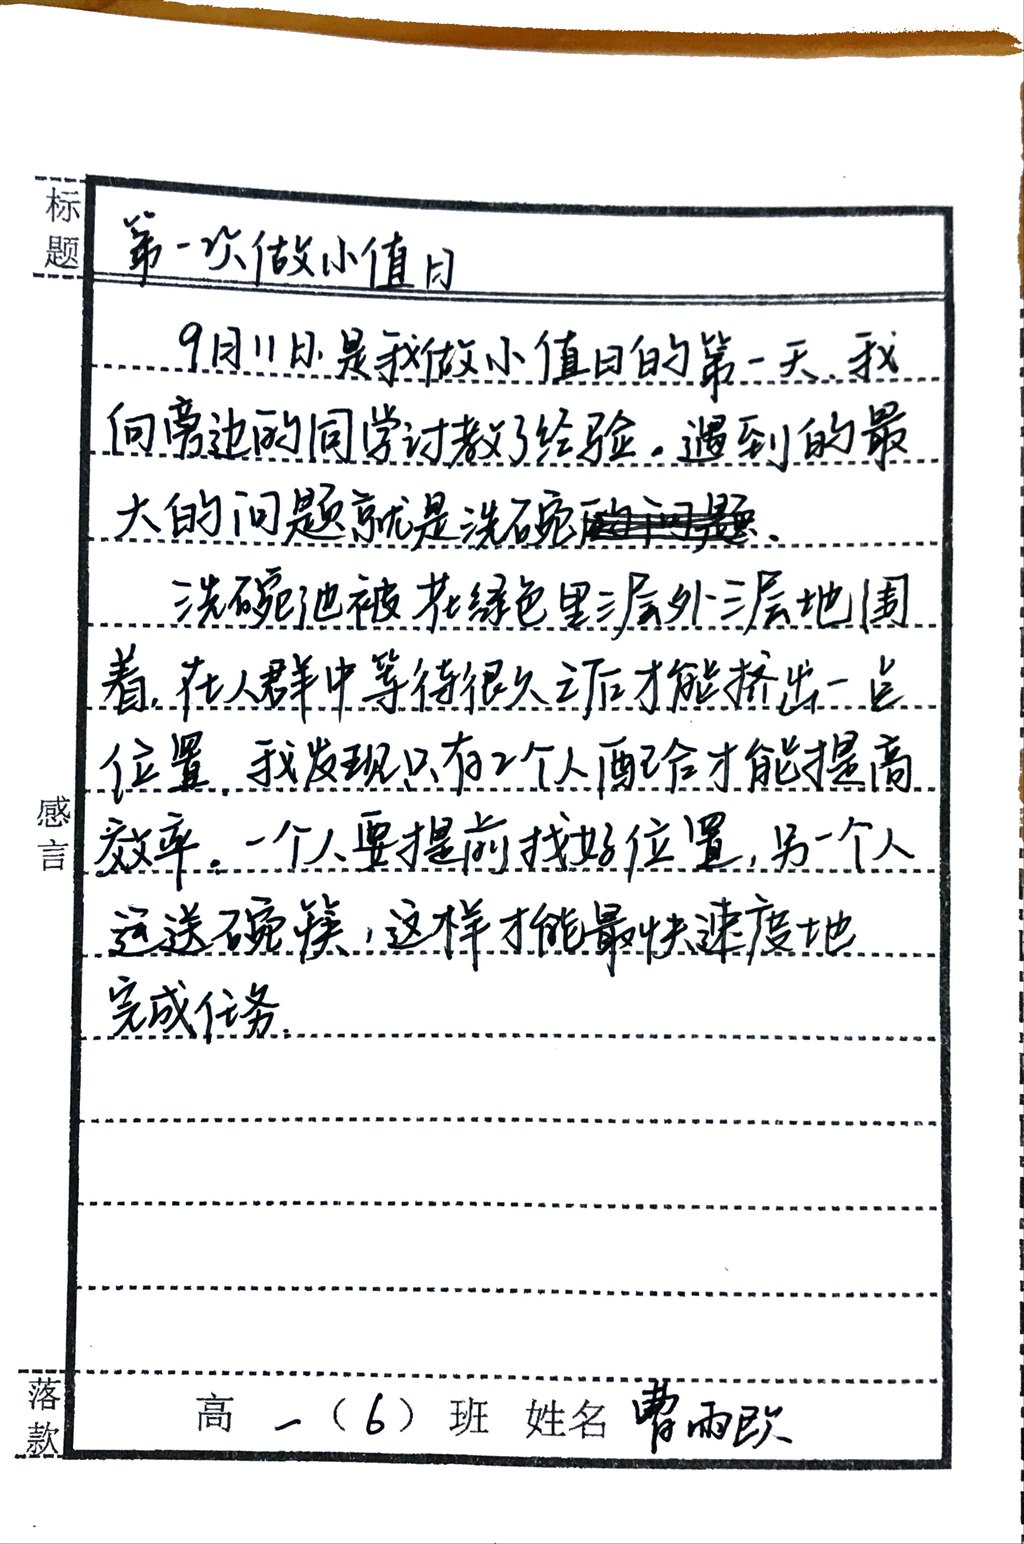 标题
第一次做小值日
9月11日.是我做小值日的第一天.我
向旁边的同学讨教了经验。遇到的最
大的问题就是洗碗的问题.
洗碗池被花绿色里三层外三层地围
着.在人群中等待很久之后才能挤出一点
位置.我发现只有2个人配合才能提高
效率。一个人要提前找好位置,另一个人
运送碗筷,这样才能最快速度地
完成任务.
感言
落款
高一(6)班 姓名曹雨欧